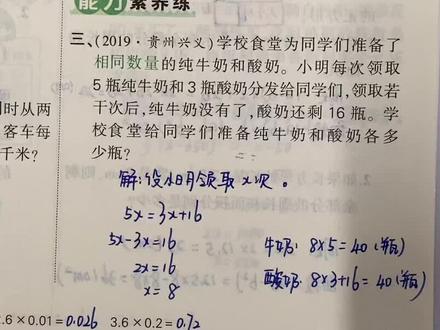 能力素养练
三、(2019·贵州兴义)学校食堂为同学们准备了
相同数量的纯牛奶和酸奶。小明每次领取
5瓶纯牛奶和3瓶酸奶分发给同学们,领取若
干次后,纯牛奶没有了,酸奶还剩16瓶。学
校食堂给同学们准备纯牛奶和酸奶各多
少瓶?
时从两
客车每
千米?
解:设小明领取x次。
5x=3x+16
5x-3x=16
2x=16
x=8
牛奶: 8×5=40(瓶)
酸奶: 8×3+16=40(瓶)
.6×0.01=0.026 3.6×0.2=0.72